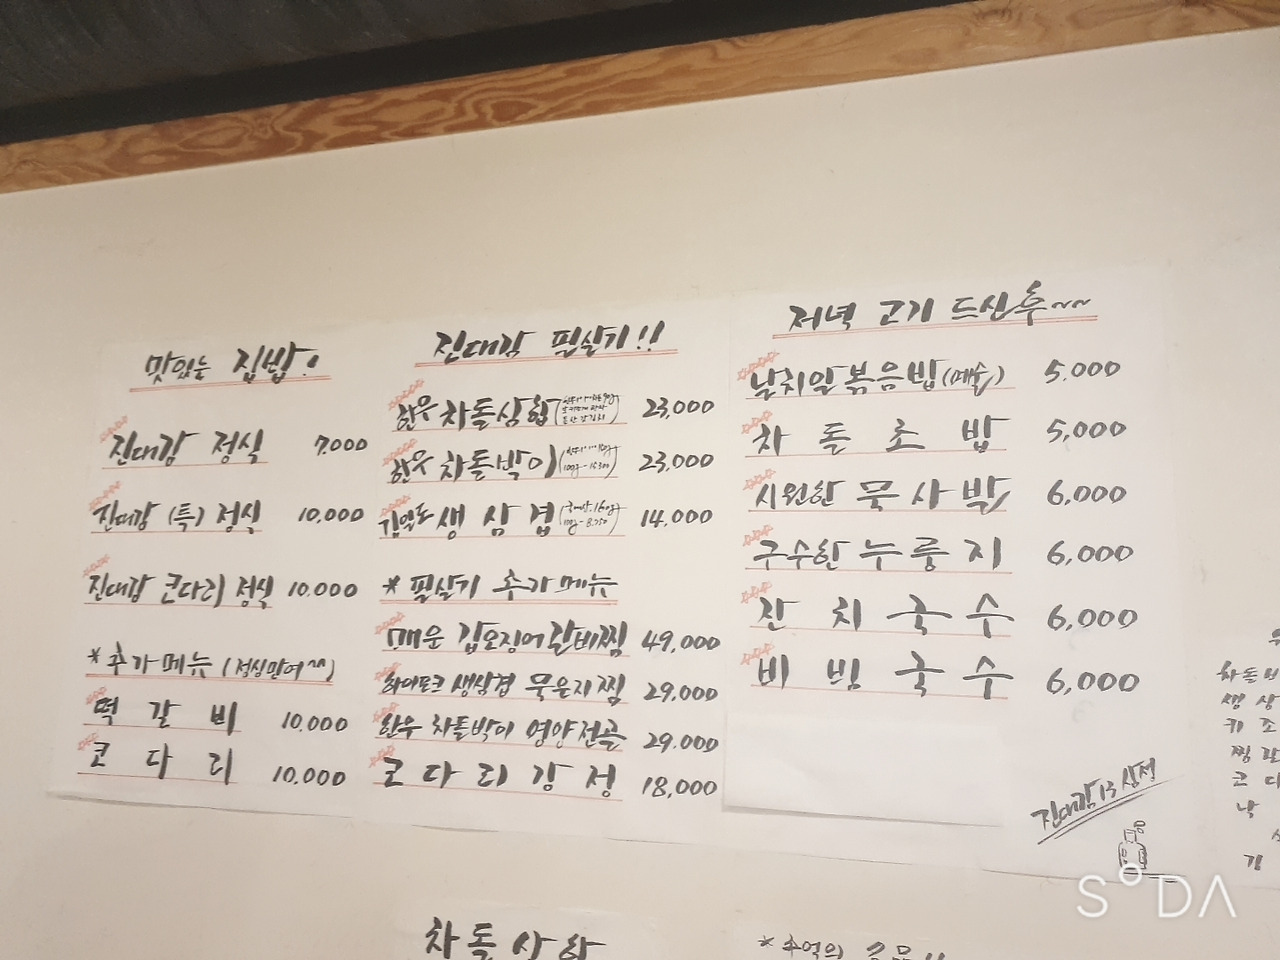 맛있는 집밥!
진대감 정식 7,000
진대감 (특) 정식 10,000
진대감 코다리 정식 10,000
* 추가메뉴 (점심만여^^)
떡갈비 10,000
코다리 10,000
진대감 필살기!!
한우 차돌삼합 23,000
한우 차돌박이 23,000
생삼겹 14,000
* 필살기 추가메뉴
매운 갑오징어갈비찜 49,000
하이포크 생삼겹 묵은지찜 29,000
한우 차돌박이 영양전골 29,000
코다리강정 18,000
저녁 고기 드신후~~
날치알볶음밥(예술) 5,000
차돌초밥 5,000
시원한 묵사발 6,000
구수한 누룽지 6,000
잔치국수 6,000
비빔국수 6,000
진대감 13 삼전
차돌
생삼
코다
차돌삼합
* 추억의
SODA